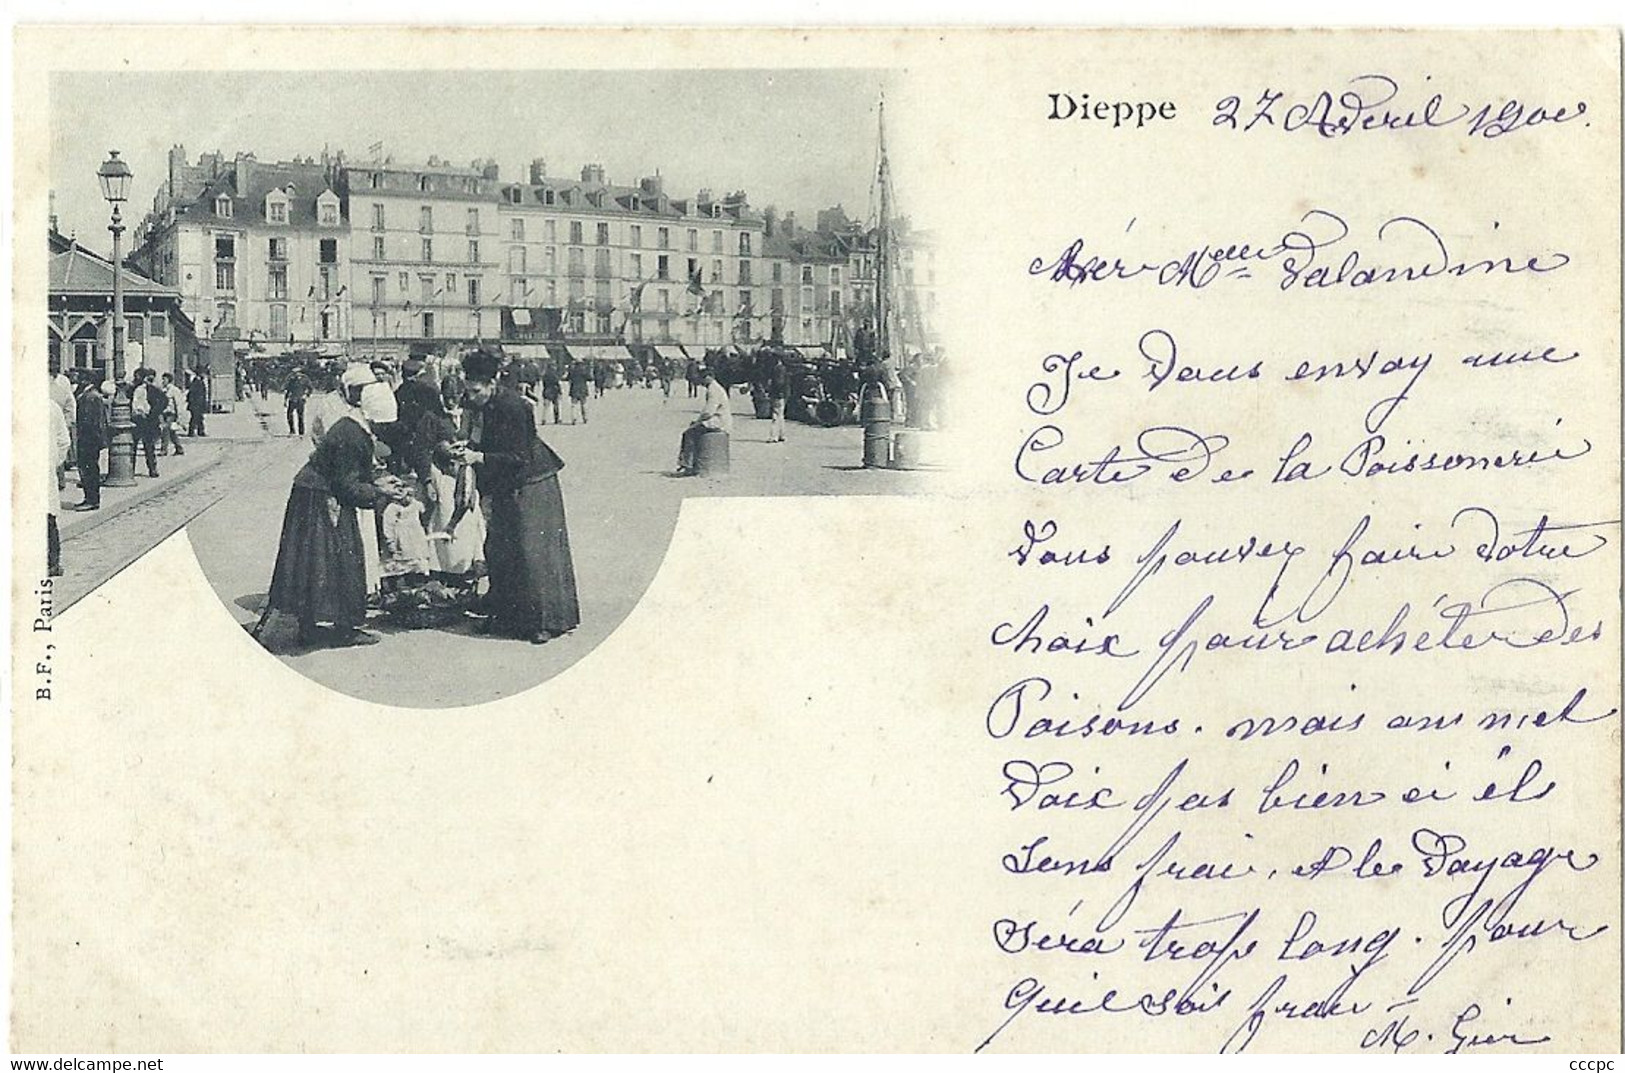 Dieppe 27 Avril 1900.
Chér Melle Valandine
Je vous envoy une
Carte de la Poissonerie
Vous pouvez faire votre
choix pour achéter des
Poisons. mais on met
voix pas bien ci ils
sons frai, et le voyage
séra trop long. pour
quil soit frai -
M.
B.F., Paris
cccpc